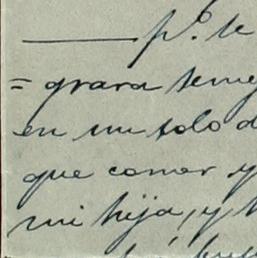 pº. te
= grara teme
en un solo d
que comer y
mi hija, y t